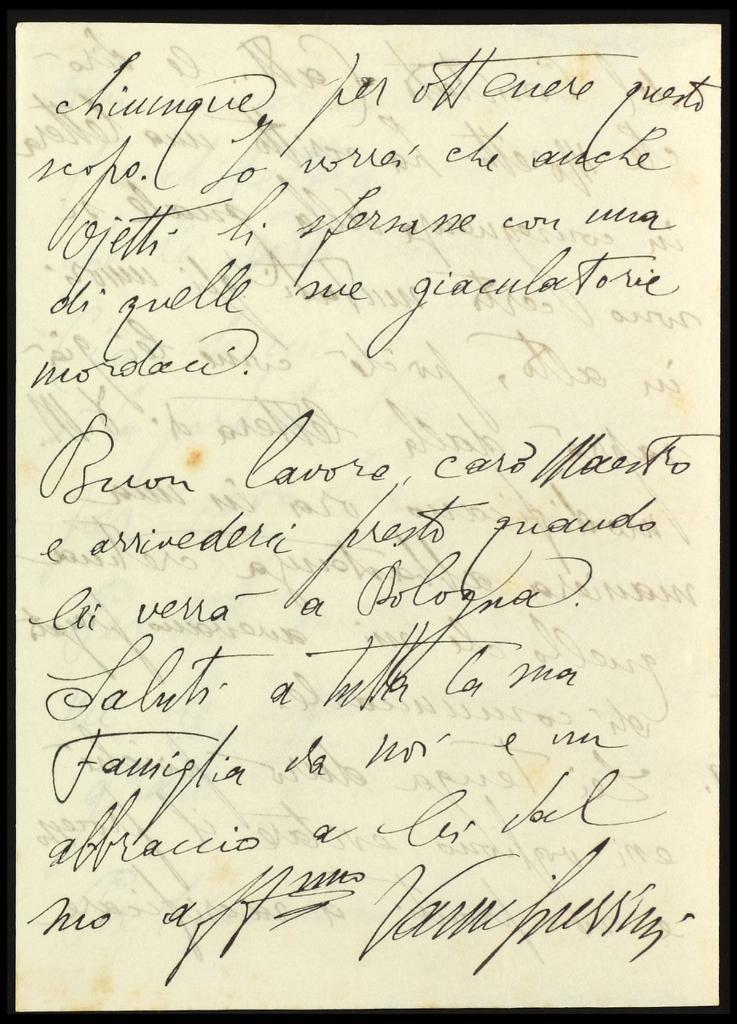 chiunque per ottenere questo
scopo. Io vorrei che anche
Ojetti li sferzasse con una
di quelle sue giaculatorie
mordaci.
Buon lavoro, caro Maestro
e arrivederci presto quando
lei verrà a Bologna.
Saluti a tutta la sua
Famiglia da noi e un
abbraccio a lei dal
suo aff.mo